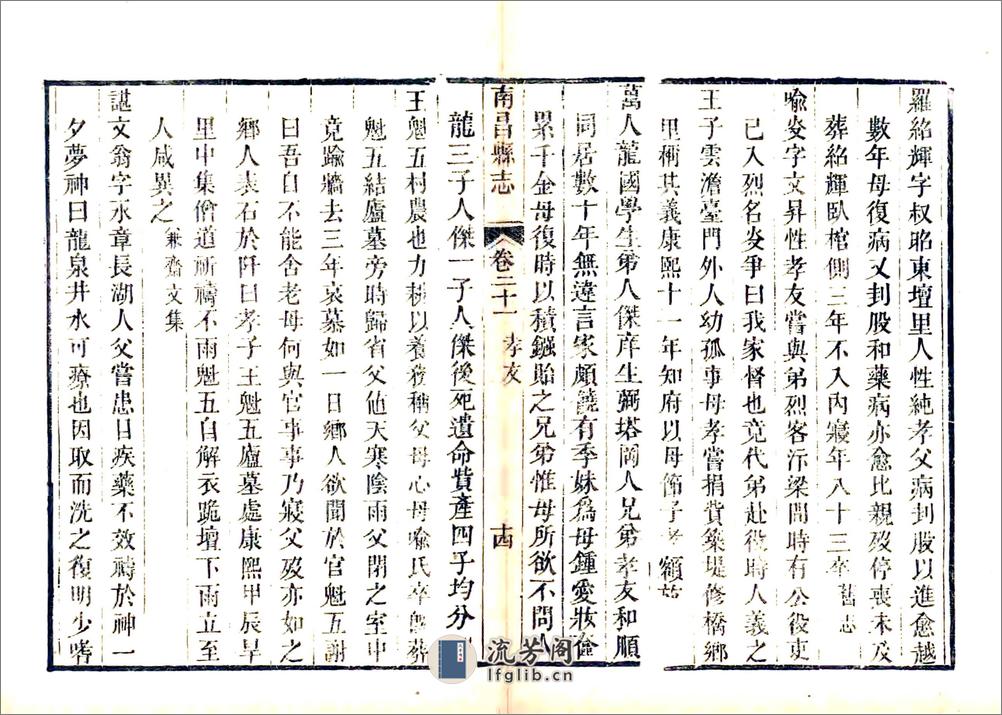 羅紹輝字叔昭東壇里人性純孝父病刲股以進愈越
數年母復病又刲股和藥病亦愈比親歿停喪未及
葬紹輝臥棺側三年不入內寢年八十三卒舊志
喻炎字文昇性孝友嘗與弟烈客汴梁間時有公役吏
已入烈名炎爭曰我家督也竟代弟赴役時人義之
王子雲澹臺門外人幼孤事母孝嘗捐貲築堤修橋鄉
里稱其義康熙十一年知府以母節子孝額
萬人龍國學生弟人傑庠生彌塔閣人兄弟孝友和順
同居數十年無違言家頗饒有季妹為母鍾愛妝奩
累千金母復時以積鏹貽之兄弟惟母所欲不問人
南昌縣志 卷二十一 孝友 十四
龍三子人傑一子人傑後死遺命貲產四子均分
王魁五村農也力耕以養務稱父母心母喻氏卒既葬
魁五結廬墓旁時歸省父他天寒陰雨父閉之室中
竟踰牆去三年哀慕如一日鄉人欲聞於官魁五謝
曰吾自不能舍老母何與官事事乃寢父歿亦如之
鄉人表石於阡曰孝子王魁五廬墓處康熙甲辰旱
里中集僧道所禱不雨魁五自解衣跪壇下雨立至
人咸異之 兼齋文集
諶文翁字水章長湖人父嘗患目疾藥不效禱於神一
夕夢神曰龍泉井水可療也因取而洗之復明少嗜
流芳閣
lfglib.cn